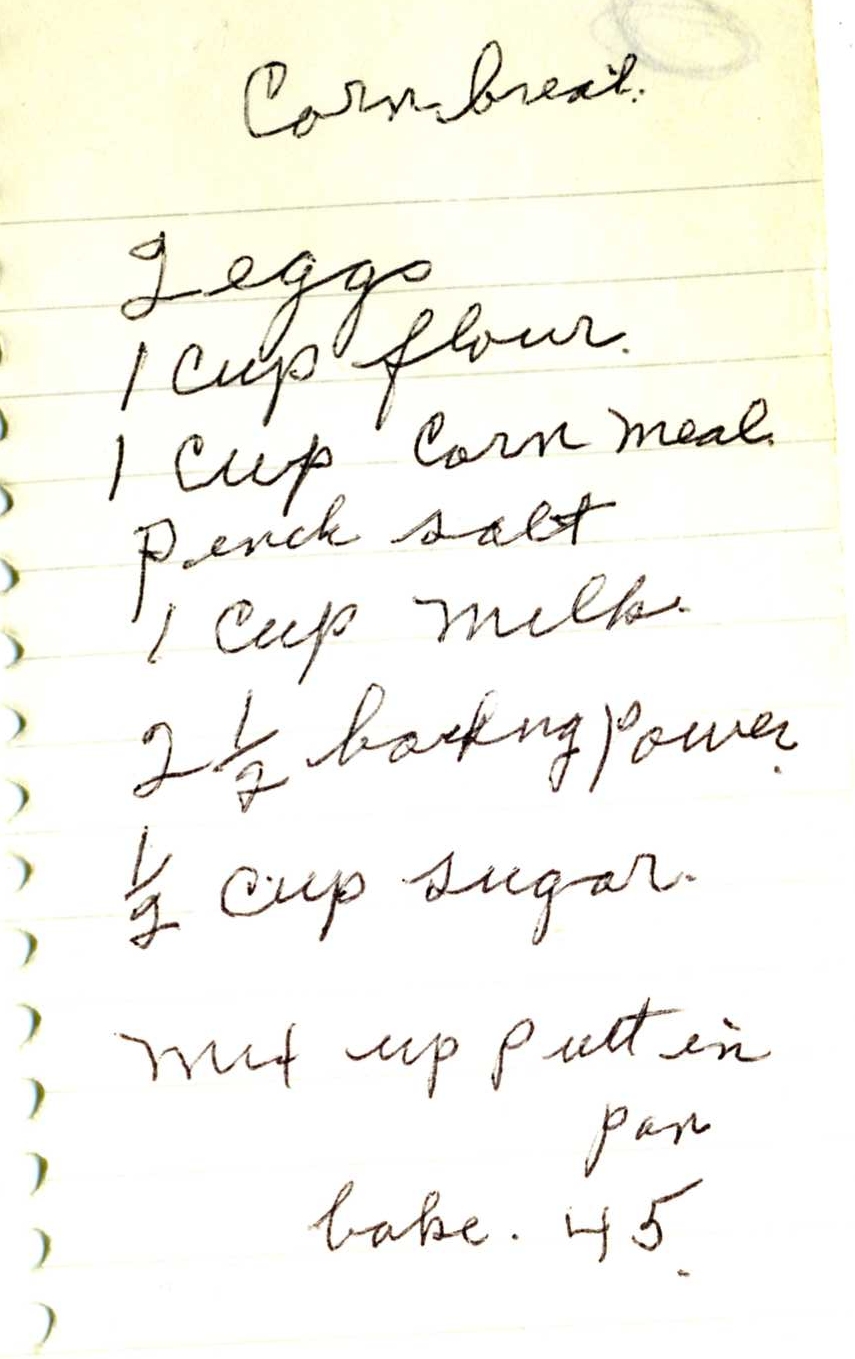 Corn bread.
2 eggs
1 cup flour.
1 cup Corn meal.
pinch salt
1 cup milk.
2 1/2 backing power.
1/2 cup sugar.
mix up putt in
pan
bake. 45.